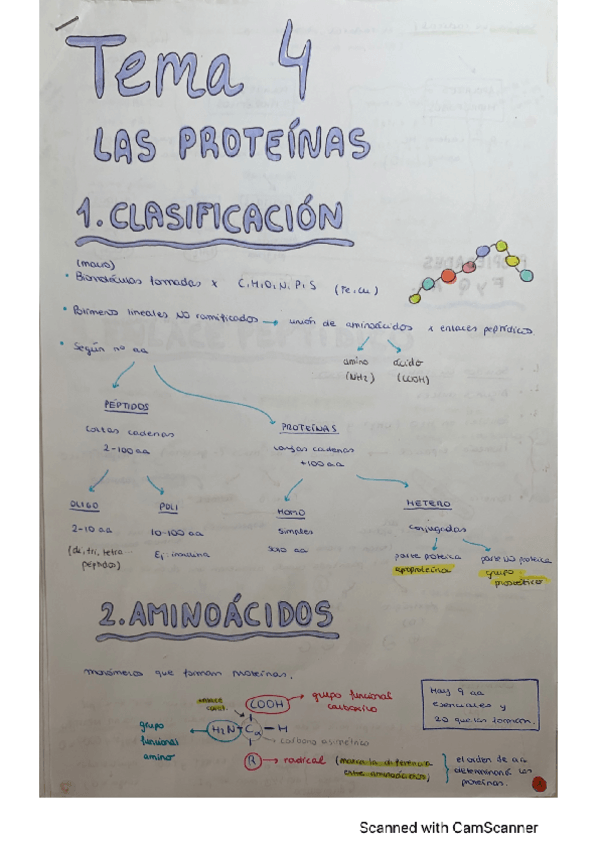 Tema 4
LAS PROTEÍNAS
1. CLASIFICACIÓN
(macro)
• Biomoléculas formadas x C, H, O, N, P, S (Fe, Cu)
• Polímeros lineales NO ramificados → unión de aminoácidos x enlaces peptídicos
amino ácido
(NH2) (COOH)
• Según nº aa
PÉPTIDOS
cortas cadenas
2-100 aa
PROTEÍNAS
largas cadenas
+100 aa
OLIGO
2-10 aa
(di, tri, tetra
péptidos)
POLI
10-100 aa
Ej. insulina
HOMO
simples
solo aa
HETERO
conjugadas
parte proteica
apoproteína
parte no proteica
grupo
prostético
2. AMINOÁCIDOS
monómeros que forman proteínas.
Hay 9 aa
esenciales y
20 que las forman.
enlace
coval.
COOH → grupo funcional
carboxilo
grupo
funcional
amino
H2N - Cα - H
carbono asimétrico
R → radical (marca la diferencia
entre aminoácidos)
el orden de aa
determinará las
proteínas.
Scanned with CamScanner